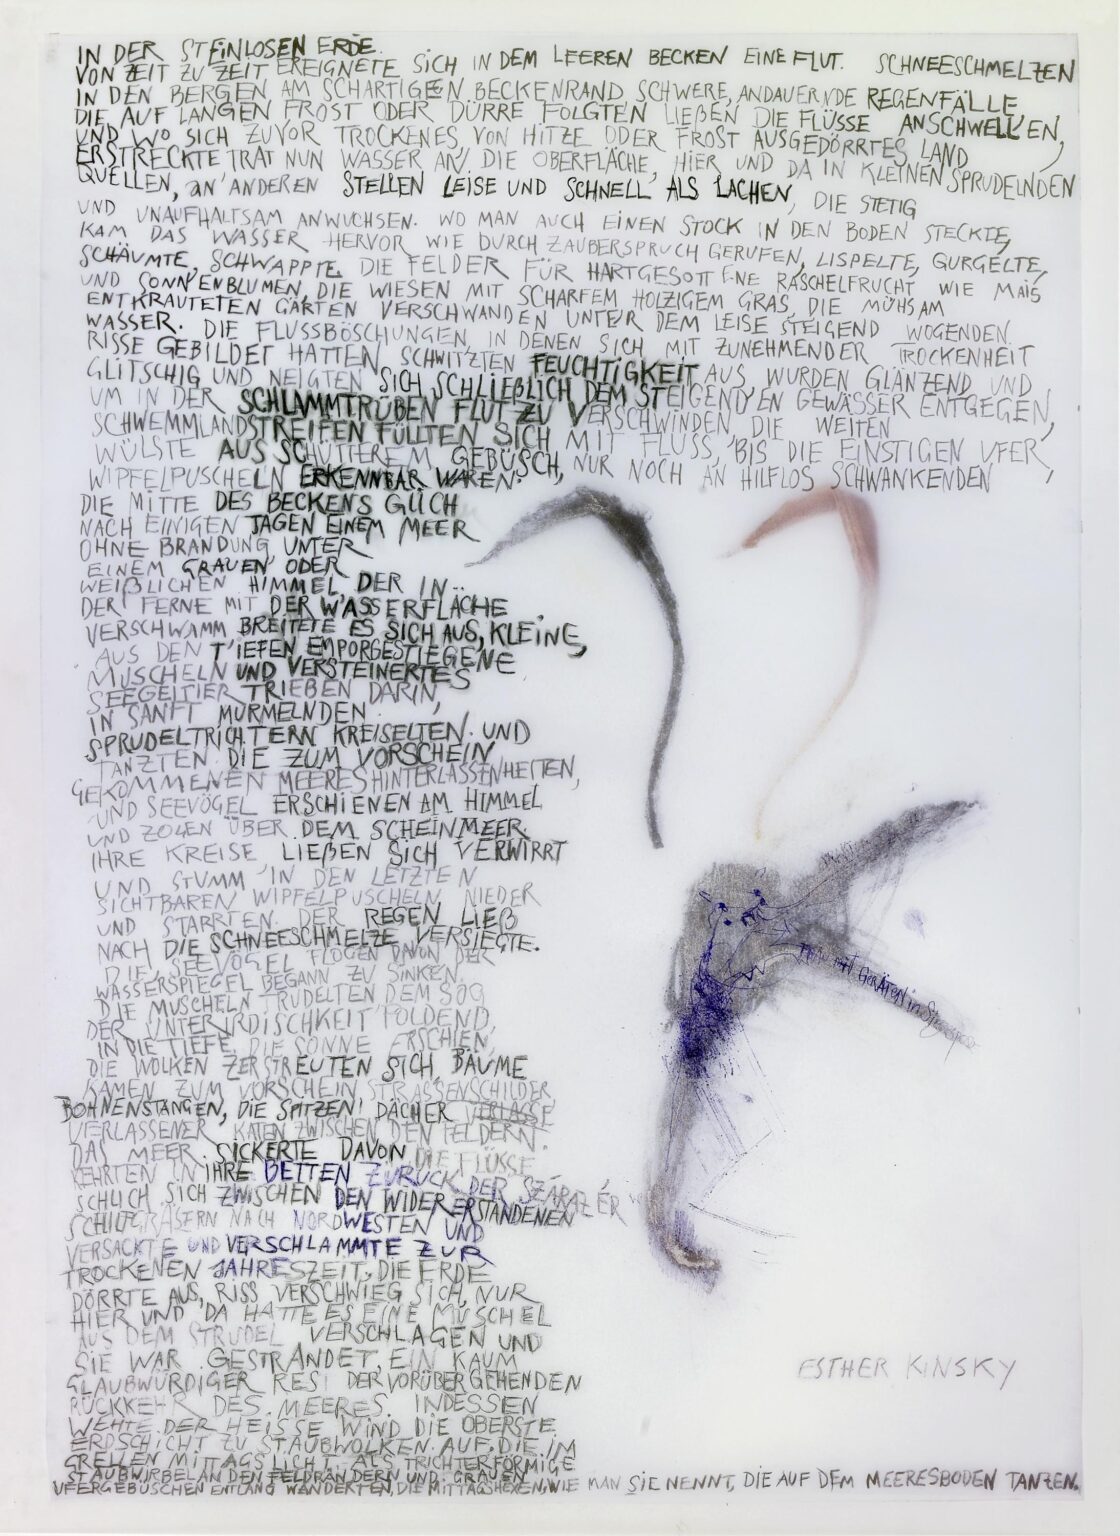 IN DER STEINLOSEN ERDE.
VON ZEIT ZU ZEIT EREIGNETE SICH IN DEM LEEREN BECKEN EINE FLUT. SCHNEESCHMELZEN
IN DEN BERGEN AM SCHARTIGEN BECKENRAND SCHWERE, ANDAUERNDE REGENFÄLLE
DIE AUF LANGEN FROST ODER DÜRRE FOLGTEN LIEßEN DIE FLÜSSE ANSCHWELLEN,
UND WO SICH ZUVOR TROCKENES, VON HITZE ODER FROST AUSGEDÖRRTES LAND
ERSTRECKTE TRAT NUN WASSER AN DIE OBERFLÄCHE, HIER UND DA IN KLEINEN SPRUDELNDEN
QUELLEN, AN ANDEREN STELLEN LEISE UND SCHNELL ALS LACHEN, DIE STETIG
UND UNAUFHALTSAM ANWUCHSEN. WO MAN AUCH EINEN STOCK IN DEN BODEN STECKTE,
KAM DAS WASSER HERVOR WIE DURCH ZAUBERSPRUCH GERUFEN, LISPELTE, GURGELTE,
SCHÄUMTE, SCHWAPPTE. DIE FELDER FÜR HARTGESOTTENE RASCHELFRUCHT WIE MAIS
UND SONNENBLUMEN, DIE WIESEN MIT SCHARFEM HOLZIGEM GRAS, DIE MÜHSAM
ENTKRAUTETEN GÄRTEN VERSCHWANDEN UNTER DEM LEISE STEIGEND WOGENDEN
WASSER. DIE FLUSSBÖSCHUNGEN, IN DENEN SICH MIT ZUNEHMENDER TROCKENHEIT
RISSE GEBILDET HATTEN, SCHWITZTEN FEUCHTIGKEIT AUS, WURDEN GLÄNZEND UND
GLITSCHIG UND NEIGTEN SICH SCHLIEßLICH DEM STEIGENDEN GEWÄSSER ENTGEGEN,
UM IN DER SCHLAMMTRÜBEN FLUT ZU VERSCHWINDEN DIE WEITEN
SCHWEMMLANDSTREIFEN FÜLLTEN SICH MIT FLUSS, BIS DIE EINSTIGEN UFER,
WÜLSTE AUS SCHÜTTEREM GEBÜSCH, NUR NOCH AN HILFLOS SCHWANKENDEN
WIPFELPUSCHELN ERKENNBAR WAREN.
DIE MITTE DES BECKENS GLICH
NACH EINIGEN TAGEN EINEM MEER
OHNE BRANDUNG UNTER
EINEM GRAUEN ODER
WEIßLICHEN HIMMEL, DER IN
DER FERNE MIT DER WASSERFLÄCHE
VERSCHWAMM BREITETE ES SICH AUS, KLEINE,
AUS DEN TIEFEN EMPORGESTIEGENE
MUSCHELN UND VERSTEINERTES
SEEGETIER TRIEBEN DARIN,
IN SANFT MURMELNDEN
SPRUDELTRICHTERN KREISELTEN UND
TANZTEN DIE ZUM VORSCHEIN
GEKOMMENEN MEERESHINTERLASSENHEITEN,
UND SEEVÖGEL ERSCHIENEN AM HIMMEL
UND ZOGEN ÜBER DEM SCHEINMEER
IHRE KREISE, LIEßEN SICH VERWIRRT
UND STUMM IN DEN LETZTEN
SICHTBAREN WIPFELPUSCHELN NIEDER
UND STARRTEN. DER REGEN LIEß
NACH DIE SCHNEESCHMELZE VERSIEGTE.
DIE SEEVÖGEL FLOGEN DAVON DER
WASSERSPIEGEL BEGANN ZU SINKEN,
DIE MUSCHELN TRUDELTEN DEM SOG
DER UNTERIRDISCHKEIT FOLGEND,
IN DIE TIEFE, DIE SONNE ERSCHIEN,
DIE WOLKEN ZERSTREUTEN SICH BÄUME
KAMEN ZUM VORSCHEIN STRASSENSCHILDER
BOHNENSTANGEN, DIE SPITZEN DÄCHER VERLASSE
VERLASSENER KATEN ZWISCHEN DEN FELDERN.
DAS MEER SICKERTE DAVON DIE FLÜSSE
KEHRTEN IN IHRE BETTEN ZURÜCK DER SZÁRAZÉR
SCHLICH SICH ZWISCHEN DEN WIDERERSTANDENEN
SCHILFGRÄSERN NACH NORDWESTEN UND
VERSACKTE UND VERSCHLAMMTE ZUR
TROCKENEN JAHRESZEIT, DIE ERDE
DÖRRTE AUS, RISS VERSCHWIEG SICH, NUR
HIER UND DA HATTE ES EINE MUSCHEL
AUS DEM STRUDEL VERSCHLAGEN UND
SIE WAR GESTRANDET, EIN KAUM
GLAUBWÜRDIGER REST DER VORÜBERGEHENDEN
RÜCKKEHR DES MEERES. INDESSEN
WEHTE DER HEISSE WIND DIE OBERSTE
ERDSCHICHT ZU STAUBWOLKEN AUF, DIE IM
GRELLEN MITTAGSLICHT ALS TRICHTERFÖRMIGE
STAUBWIRBEL AN DEN FELDRÄNDERN UND GRAUEN
UFERGEBÜSCHEN ENTLANG WANDERTEN, DIE MITTAGSHEXEN, WIE MAN SIE NENNT, DIE AUF DEM MEERESBODEN TANZEN.
mit GERÄTEN in
ESTHER KINSKY